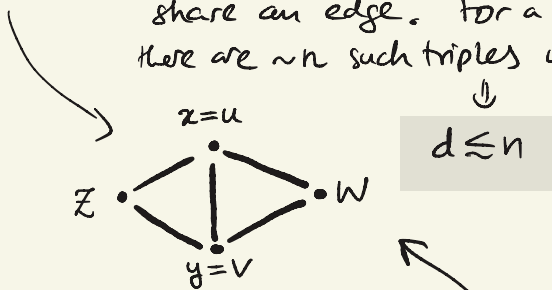 share an edge. For a
there are ~n such triples
⇓
x=u
d ≲ n
z
w
y=v